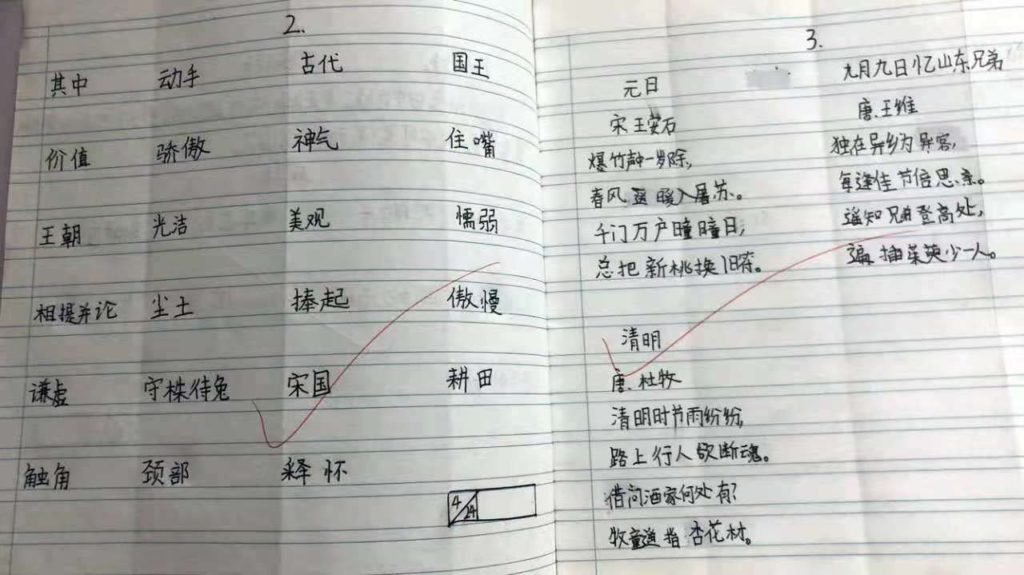 2.
其中 动手 古代 国王
价值 骄傲 神气 住嘴
王朝 光洁 美观 懦弱
相提并论 尘土 捧起 傲慢
谦虚 守株待兔 宋国 耕田
触角 颈部 释怀
4/14
3.
元日
宋.王安石
爆竹声中一岁除,
春风 暖入屠苏。
千门万户曈曈日,
总把新桃换旧符。
清明
唐.杜牧
清明时节雨纷纷,
路上行人欲断魂。
借问酒家何处有?
牧童遥指杏花村。
九月九日忆山东兄弟
唐.王维
独在异乡为异客,
每逢佳节倍思亲。
遥知兄弟登高处,
遍插茱萸少一人。